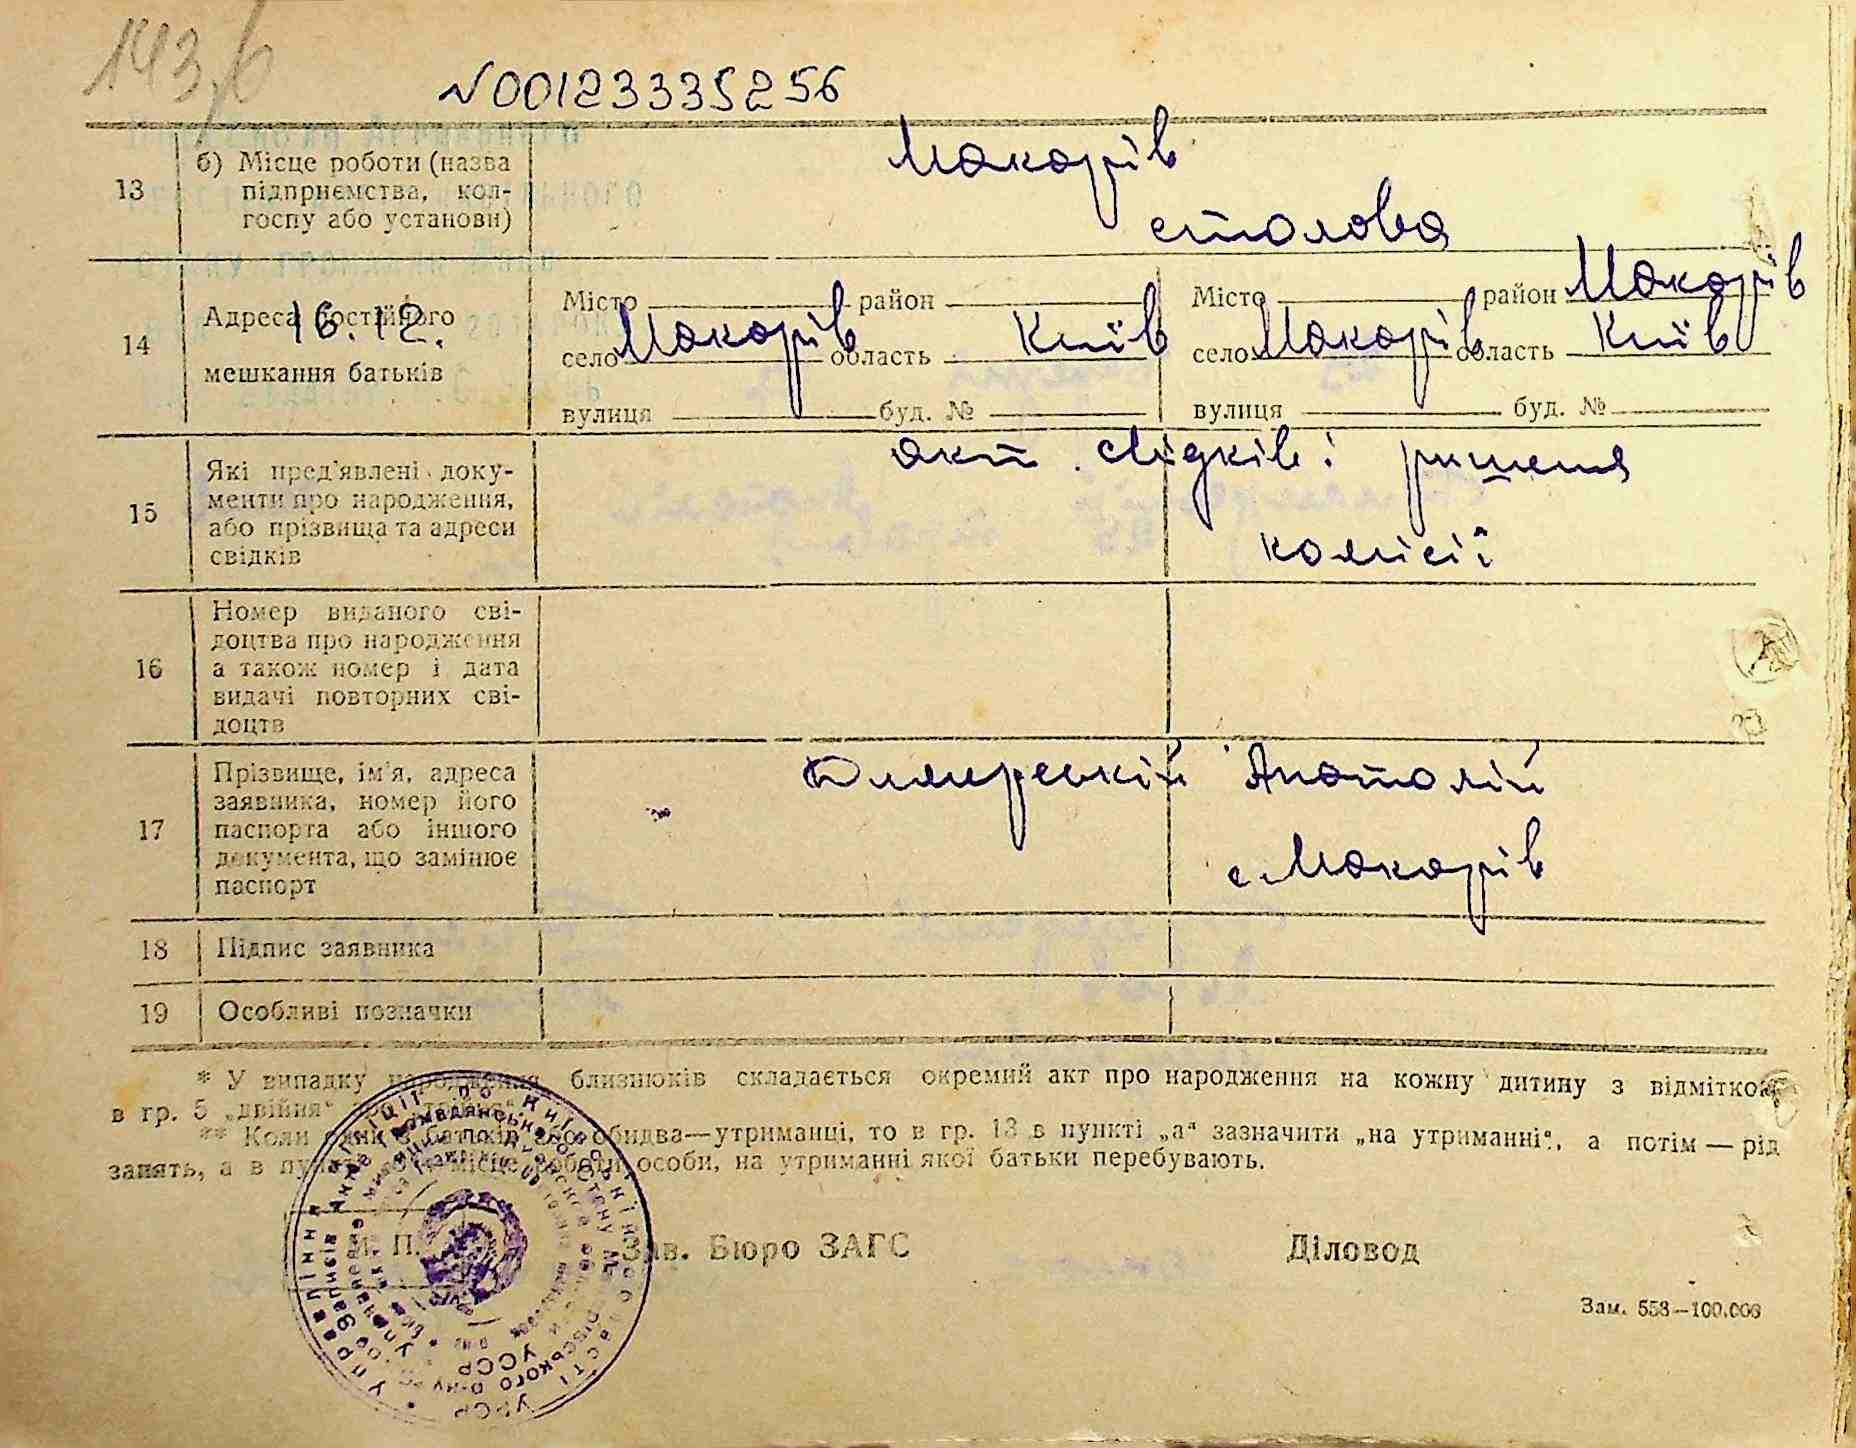 143,6
N00123335256
13
б) Місце роботи (назва
підприємства, кол-
госпу або установи)
Макарів
столова
14
Адреса постійного
16.12.
мешкання батьків
Місто район
село Макарів область Київ
вулиця буд. №
Місто район Макарів
село Макарів область Київ
вулиця буд. №
15
Які пред'явлені доку-
менти про народження,
або прізвища та адреси
свідків
акт свідків і ришеня
комісії
16
Номер виданого сві-
доцтва про народження
а також номер і дата
видачі повторних сві-
доцтв
17
Прізвище, ім'я, адреса
заявника, номер його
паспорта або іншого
документа, що замінює
паспорт
Анатолій
с. Макарів
18 Підпис заявника
19 Особливі позначки
* У випадку народження близнюків складається окремий акт про народження на кожну дитину з відміткою
в гр. 5 „двійня“
** Коли один з батьків або обидва—утриманці, то в гр. 13 в пункті „а“ зазначити „на утриманні“, а потім — рід
занять, а в пункті місце роботи особи, на утриманні якої батьки перебувають.
М. П.
Зав. Бюро ЗАГС
Діловод
Зам. 553—100.000
УРСР
УССР